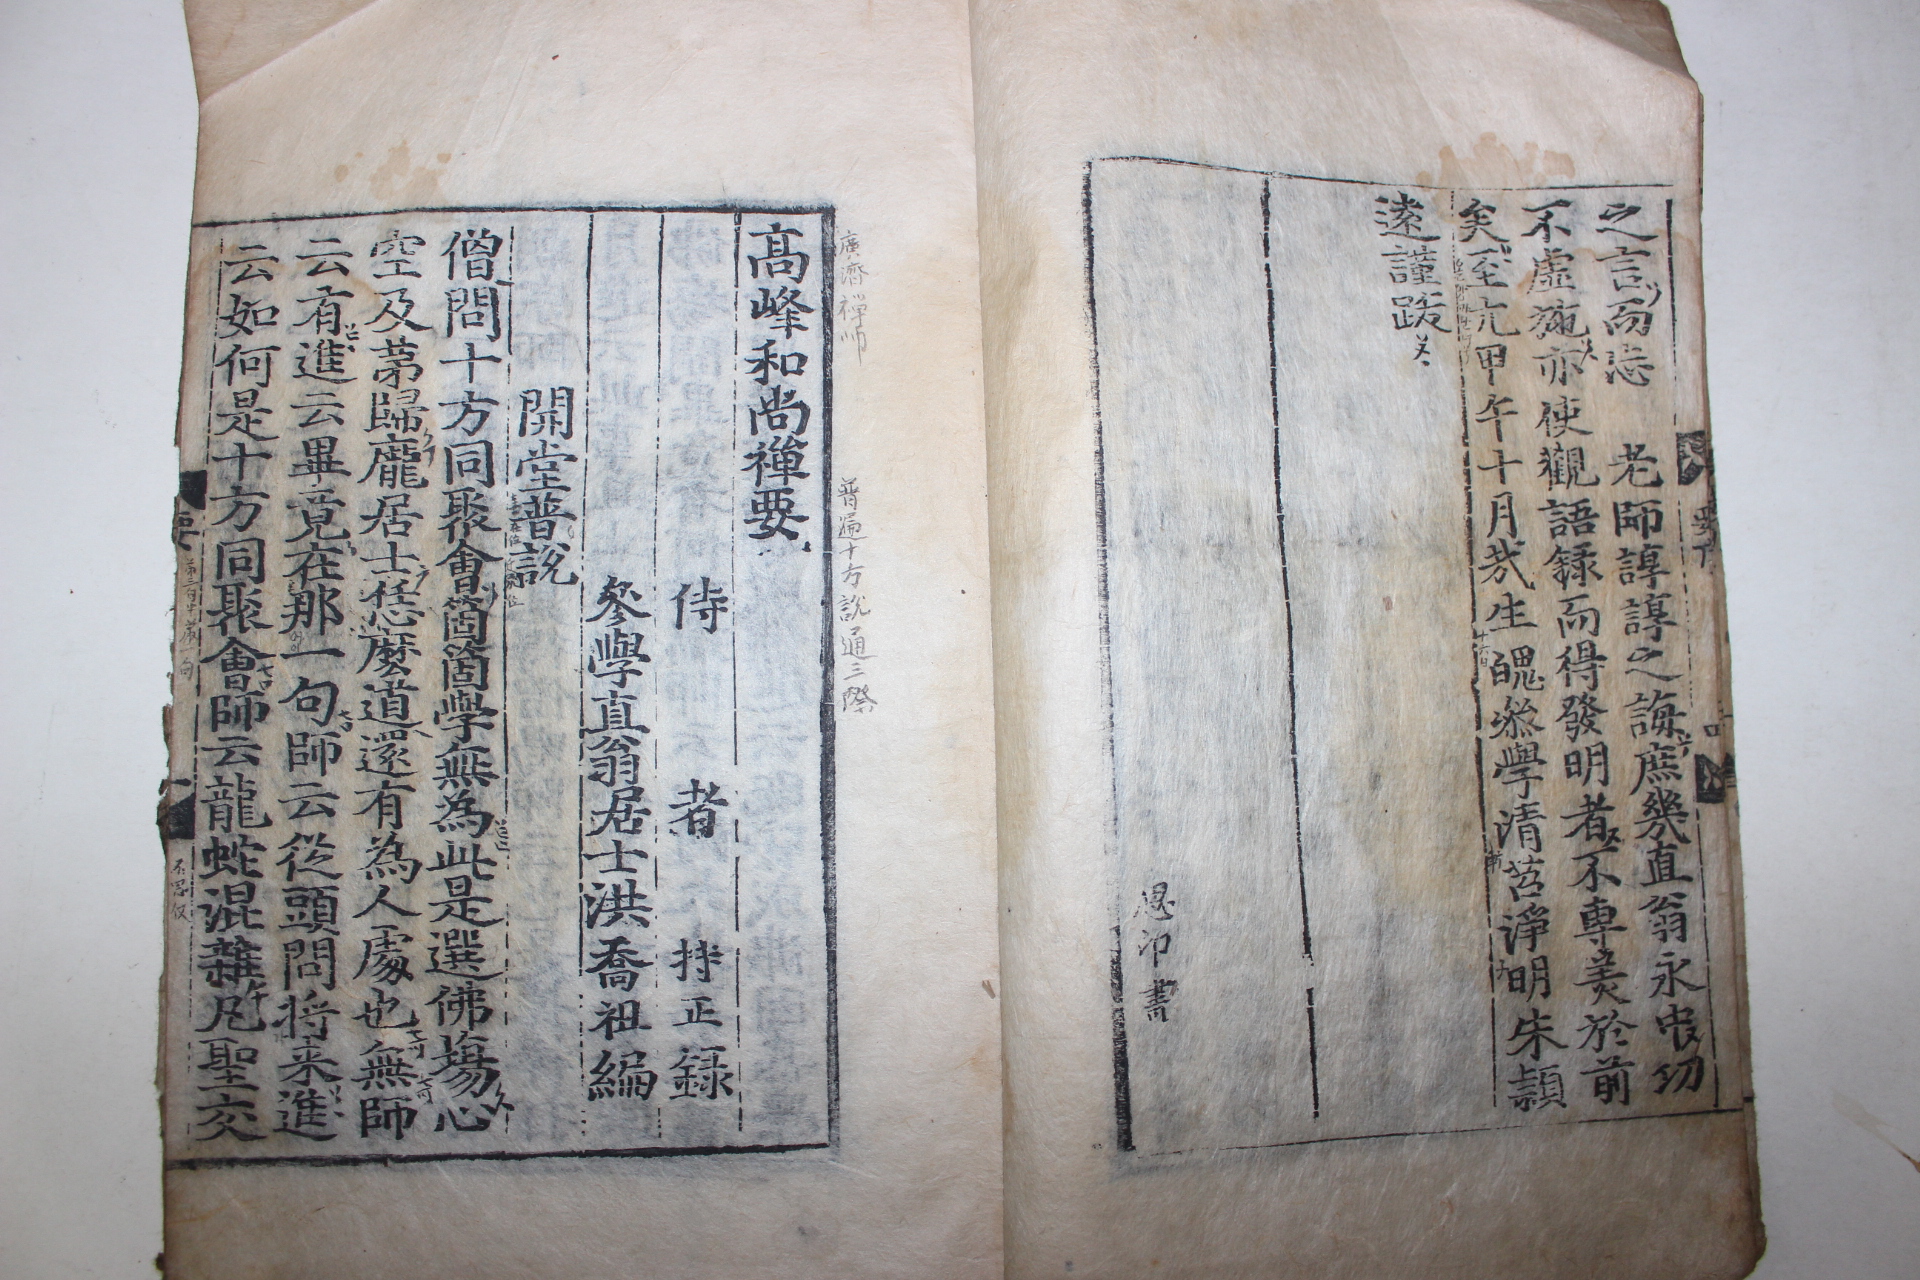 之言而忘 老師諄諄之誨庶幾直翁永中切
不虛施亦使觀語録而得發明者不專美於前
矣至元甲午十月哉生魄叅學清苕淨明朱頴
遠謹跋
恩印書
廣濟禪師 普遍十方說通三際
高峰和尚禪要
侍者持正録
叅學直翁居士洪喬祖編
開堂普說
僧問十方同聚會箇箇學無為此是選佛場心
空及苐歸龐居士恁麽道還有為人處也無師
云有進云畢竟在那一句師云從頭問將来進
云如何是十方同聚會師云龍蛇混雜凡聖交